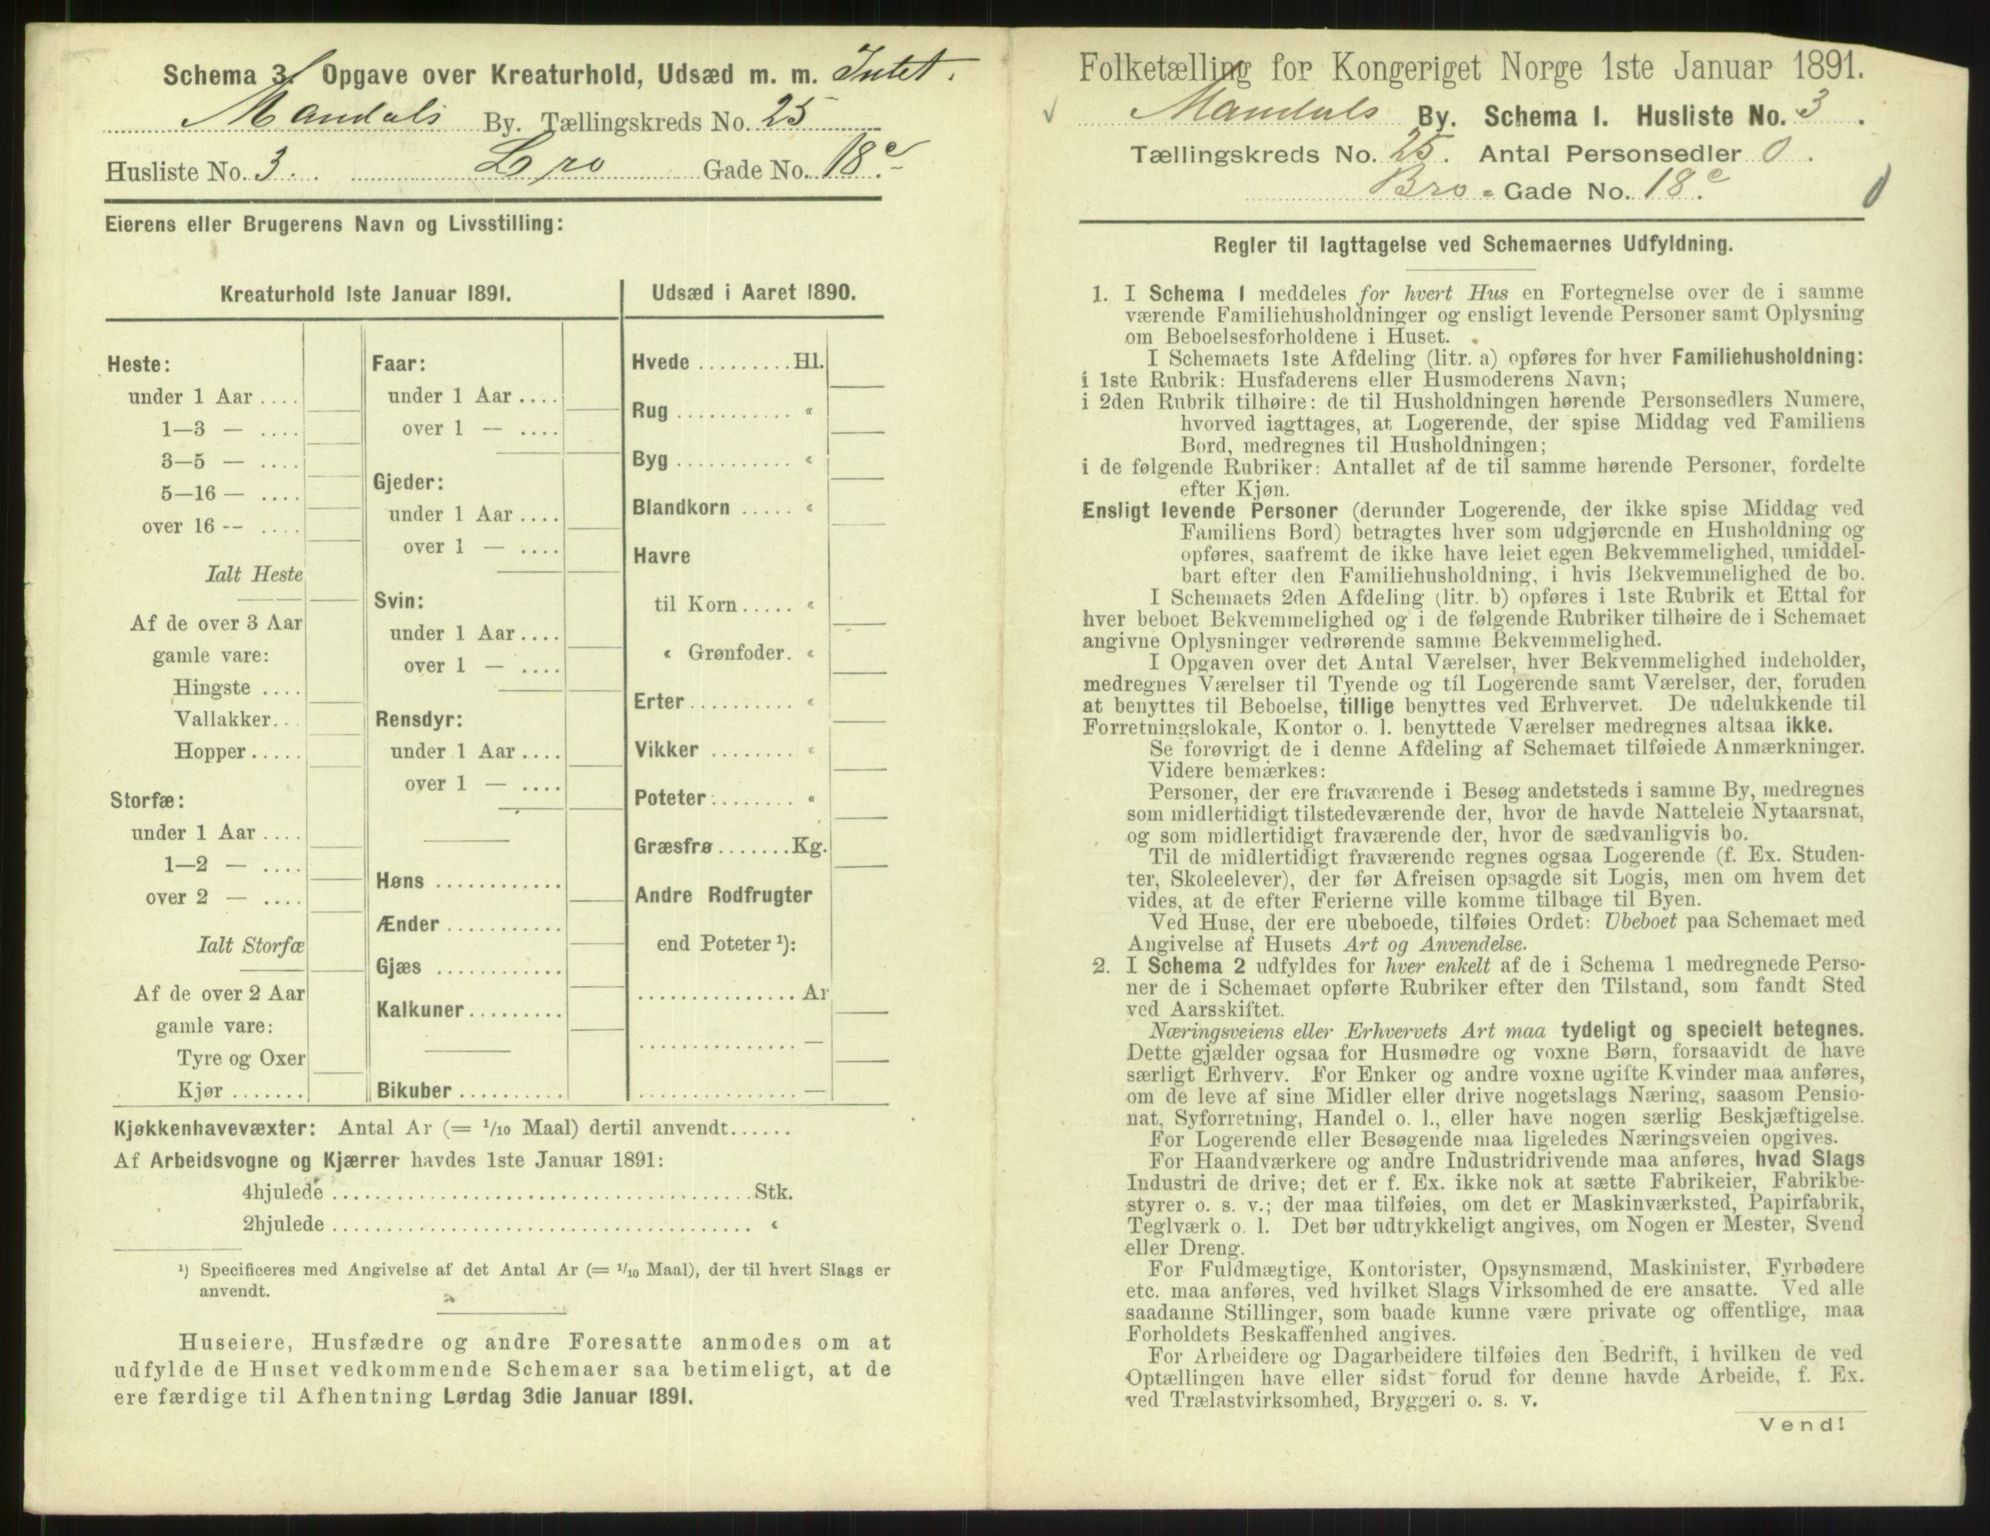 Schema 3. Opgave over Kreaturhold, Udsæd m. m. Intet.
Mandals By. Tællingskreds No. 25
Husliste No. 3. Bro Gade No. 18c.
Eierens eller Brugerens Navn og Livsstilling:
Kreaturhold 1ste Januar 1891.
Heste:
under 1 Aar ....
1—3 — ....
3—5 — ....
5—16 — ....
over 16 -- ....
Ialt Heste
Af de over 3 Aar
gamle vare:
Hingste ....
Vallakker...
Hopper .....
Storfæ:
under 1 Aar ....
1—2 — ....
over 2 — ....
Ialt Storfæ
Af de over 2 Aar
gamle vare:
Tyre og Oxer
Kjør .......
Faar:
under 1 Aar ....
over 1 — ....
Gjeder:
under 1 Aar ....
over 1 — ....
Svin:
under 1 Aar ....
over 1 — ....
Rensdyr:
under 1 Aar ....
over 1 — ....
Høns ............
Ænder ...........
Gjæs ............
Kalkuner .........
Bikuber ..........
Udsæd i Aaret 1890.
Hvede ......... Hl.
Rug ........... «
Byg ........... «
Blandkorn ..... «
Havre
til Korn ..... «
« Grønfoder. «
Erter .......... «
Vikker ........ «
Poteter ........ «
Græsfrø ....... Kg.
Andre Rodfrugter
end Poteter ¹):
............... Ar
............... —
............... —
Kjøkkenhavevæxter: Antal Ar (= 1/10 Maal) dertil anvendt ......
Af Arbeidsvogne og Kjærrer havdes 1ste Januar 1891:
4hjulede ...................................... Stk.
2hjulede ...................................... «
¹) Specificeres med Angivelse af det Antal Ar (= 1/10 Maal), der til hvert Slags er
anvendt.
Huseiere, Husfædre og andre Foresatte anmodes om at
udfylde de Huset vedkommende Schemaer saa betimeligt, at de
ere færdige til Afhentning Lørdag 3die Januar 1891.
Folketælling for Kongeriget Norge 1ste Januar 1891.
Mandals By. Schema I. Husliste No. 3.
Tællingskreds No. 25. Antal Personsedler 0.
Bro - Gade No. 18c. 0
Regler til Iagttagelse ved Schemaernes Udfyldning.
1. I Schema 1 meddeles for hvert Hus en Fortegnelse over de i samme
værende Familiehusholdninger og ensligt levende Personer samt Oplysning
om Beboelsesforholdene i Huset.
I Schemaets 1ste Afdeling (litr. a) opføres for hver Familiehusholdning:
i 1ste Rubrik: Husfaderens eller Husmoderens Navn;
i 2den Rubrik tilhøire: de til Husholdningen hørende Personsedlers Numere,
hvorved iagttages, at Logerende, der spise Middag ved Familiens
Bord, medregnes til Husholdningen;
i de følgende Rubriker: Antallet af de til samme hørende Personer, fordelte
efter Kjøn.
Ensligt levende Personer (derunder Logerende, der ikke spise Middag ved
Familiens Bord) betragtes hver som udgjørende en Husholdning og
opføres, saafremt de ikke have leiet egen Bekvemmelighed, umiddel-
bart efter den Familiehusholdning, i hvis Bekvemmelighed de bo.
I Schemaets 2den Afdeling (litr. b) opføres i 1ste Rubrik et Ettal for
hver beboet Bekvemmelighed og i de følgende Rubriker tilhøire de i Schemaet
angivne Oplysninger vedrørende samme Bekvemmelighed.
I Opgaven over det Antal Værelser, hver Bekvemmelighed indeholder,
medregnes Værelser til Tyende og til Logerende samt Værelser, der, foruden
at benyttes til Beboelse, tillige benyttes ved Erhvervet. De udelukkende til
Forretningslokale, Kontor o. l. benyttede Værelser medregnes altsaa ikke.
Se forøvrigt de i denne Afdeling af Schemaet tilføiede Anmærkninger.
Videre bemærkes:
Personer, der ere fraværende i Besøg andetsteds i samme By, medregnes
som midlertidigt tilstedeværende der, hvor de havde Natteleie Nytaarsnat,
og som midlertidigt fraværende der, hvor de sædvanligvis bo.
Til de midlertidigt fraværende regnes ogsaa Logerende (f. Ex. Studen-
ter, Skoleelever), der før Afreisen opsagde sit Logis, men om hvem det
vides, at de efter Ferierne ville komme tilbage til Byen.
Ved Huse, der ere ubeboede, tilføies Ordet: Ubeboet paa Schemaet med
Angivelse af Husets Art og Anvendelse.
2. I Schema 2 udfyldes for hver enkelt af de i Schema 1 medregnede Perso-
ner de i Schemaet opførte Rubriker efter den Tilstand, som fandt Sted
ved Aarsskiftet.
Næringsveiens eller Erhvervets Art maa tydeligt og specielt betegnes.
Dette gjælder ogsaa for Husmødre og voxne Børn, forsaavidt de have
særligt Erhverv. For Enker og andre voxne ugifte Kvinder maa anføres,
om de leve af sine Midler eller drive nogetslags Næring, saasom Pensio-
nat, Syforretning, Handel o. l., eller have nogen særlig Beskjæftigelse.
For Logerende eller Besøgende maa ligeledes Næringsveien opgives.
For Haandværkere og andre Industridrivende maa anføres, hvad Slags
Industri de drive; det er f. Ex. ikke nok at sætte Fabrikeier, Fabrikbe-
styrer o. s. v.; der maa tilføies, om det er Maskinværksted, Papirfabrik,
Teglværk o. l. Det bør udtrykkeligt angives, om Nogen er Mester, Svend
eller Dreng.
For Fuldmægtige, Kontorister, Opsynsmænd, Maskinister, Fyrbødere
etc. maa anføres, ved hvilket Slags Virksomhed de ere ansatte. Ved alle
saadanne Stillinger, som baade kunne være private og offentlige, maa
Forholdets Beskaffenhed angives.
For Arbeidere og Dagarbeidere tilføies den Bedrift, i hvilken de ved
Optællingen have eller sidst forud for denne havde Arbeide, f. Ex.
ved Trælastvirksomhed, Bryggeri o. s. v.
Vend!